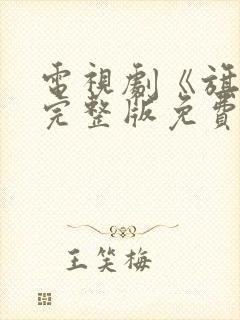 電視劇《旗
完整版免費
王笑梅